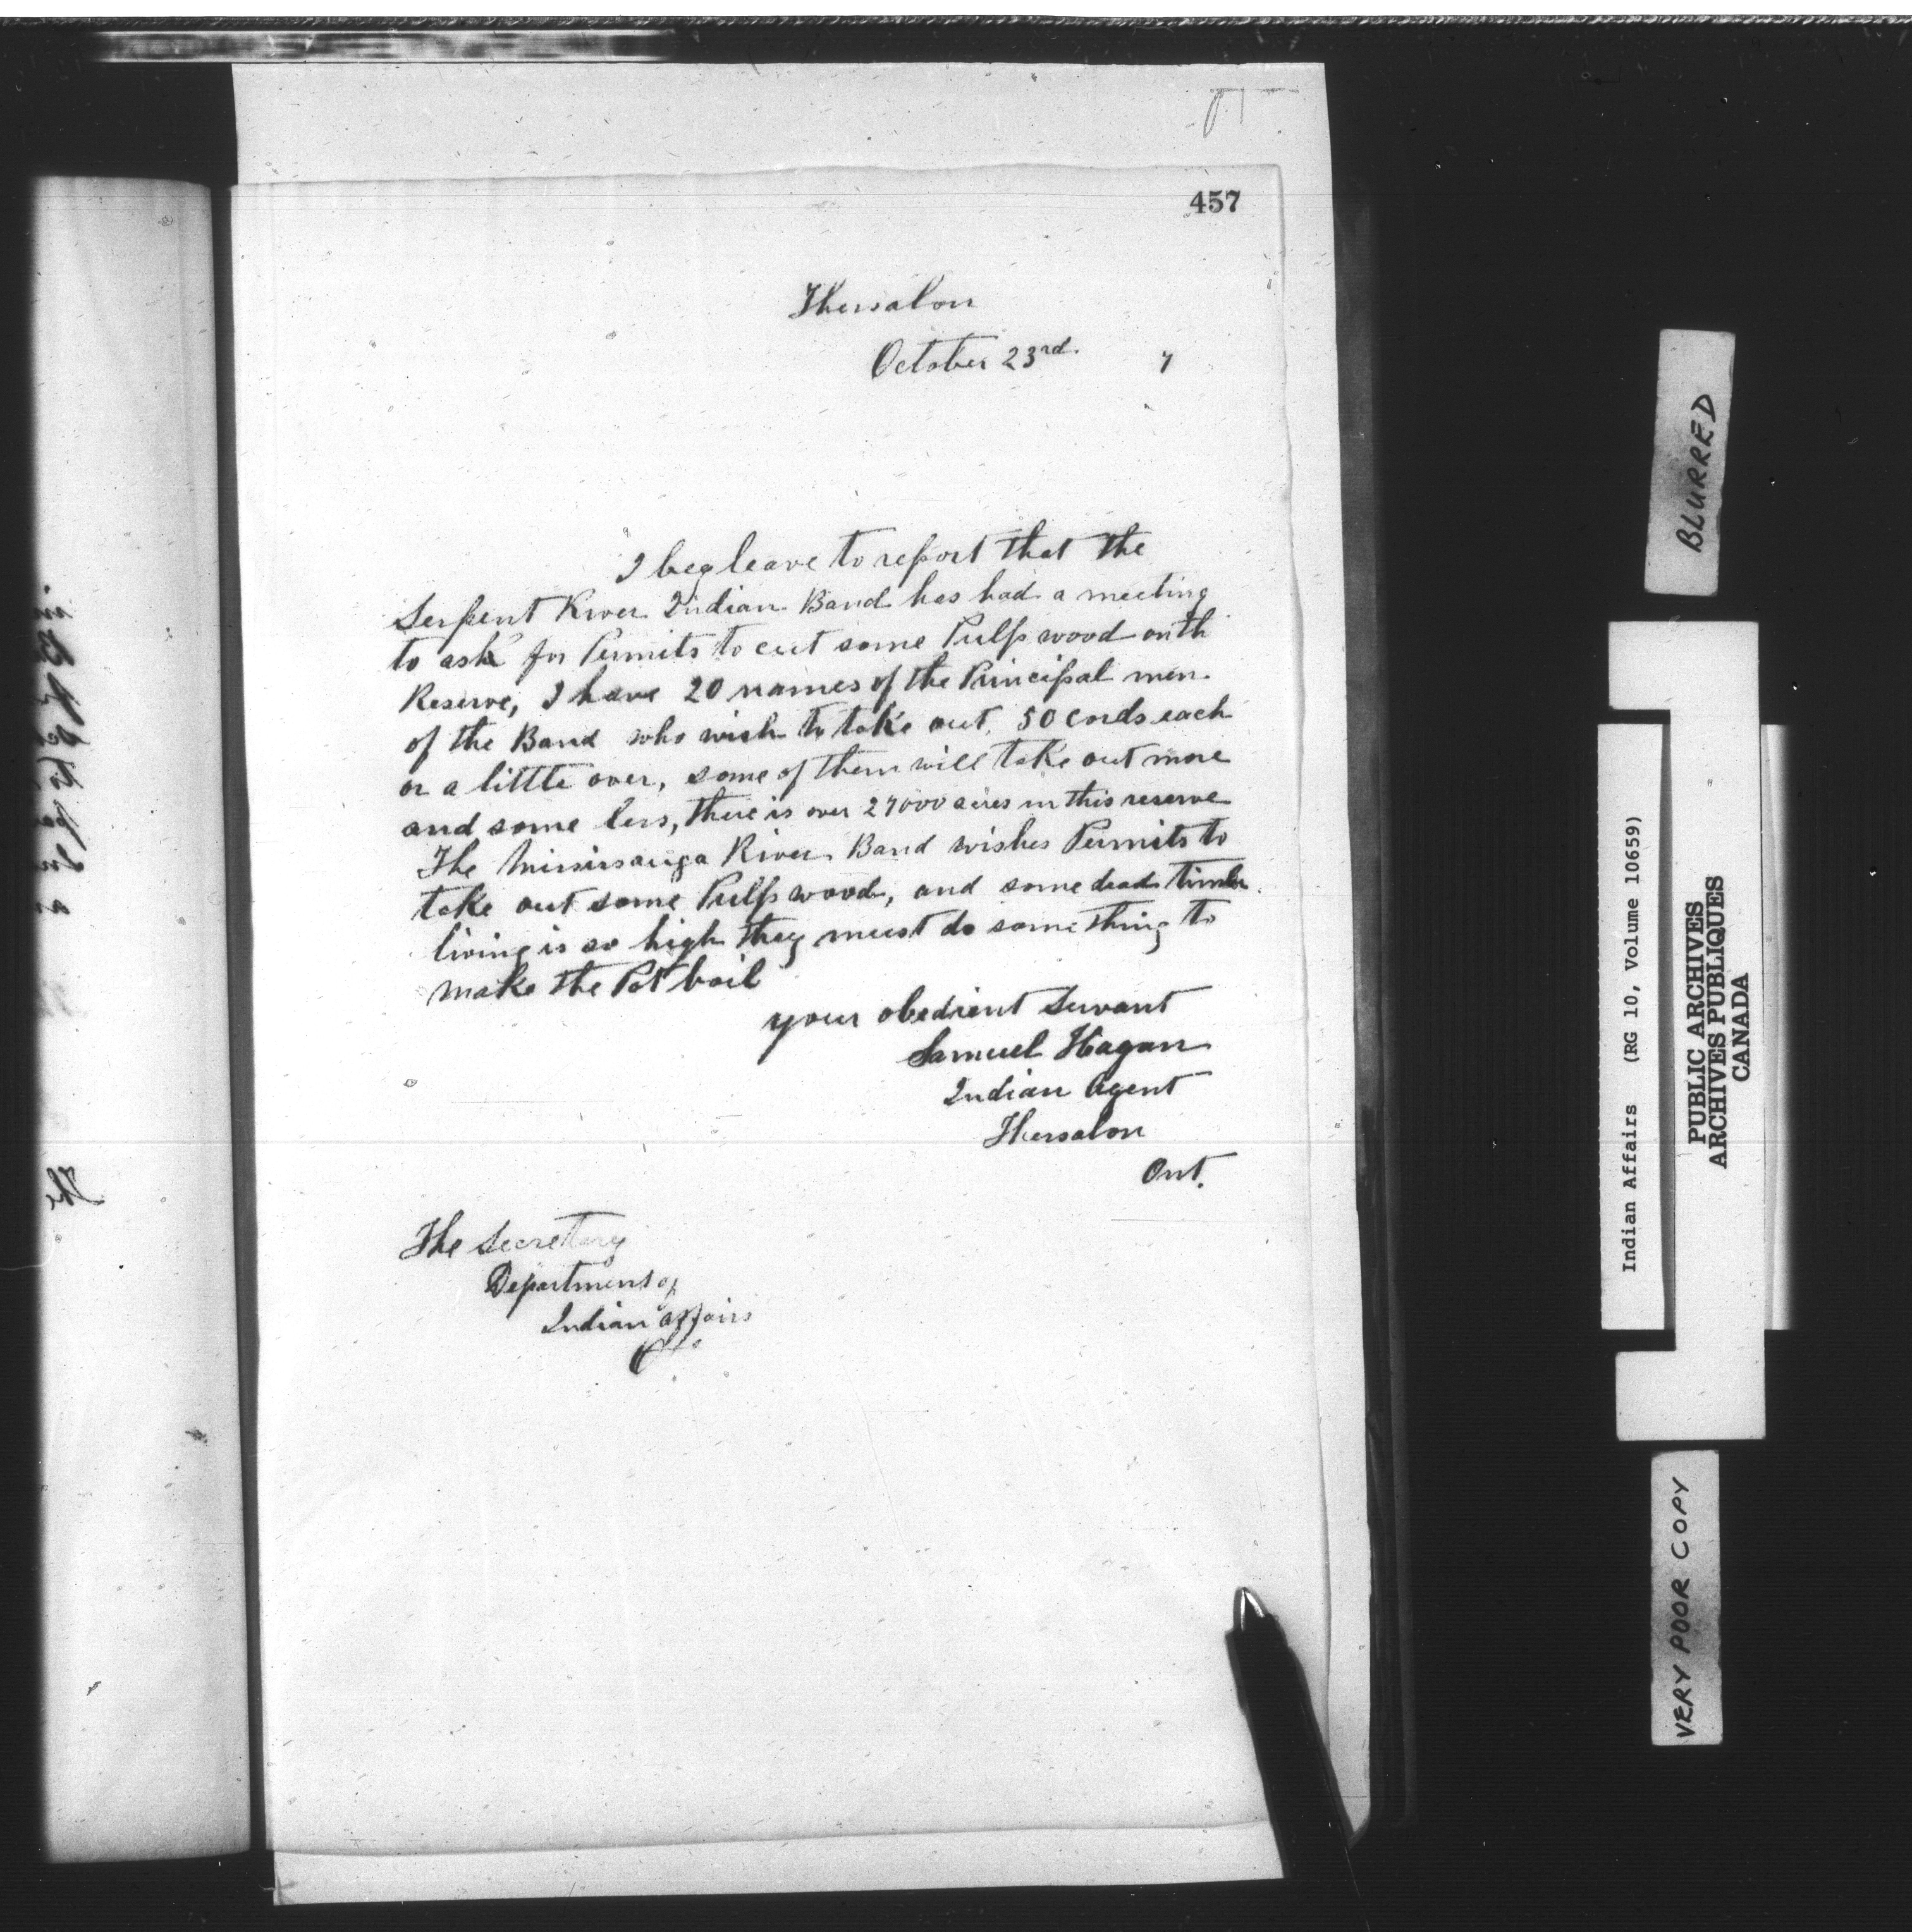 457
Thessalon
October 23rd. 7
I beg leave to report that the
Serpent River Indian Band has had a meeting
to ask for Permits to cut some Pulp wood on th
Reserve, I have 20 names of the Principal men
of the Band who wish to take out 50 cords each
or a little over, some of them will take out more
and some less, there is over 27000 acres in this reserve
The Mississauga River Band wishes Permits to
take out some Pulp wood, and some dead timber
living is so high they must do some thing to
make the Pot boil
your obedient Servant
Samuel Hagan
Indian Agent
Thessalon
Ont.
The Secretary
Department of
Indian Affairs
BLURRED
Indian Affairs (RG 10, Volume 10659)
PUBLIC ARCHIVES
ARCHIVES PUBLIQUES
CANADA
VERY POOR COPY